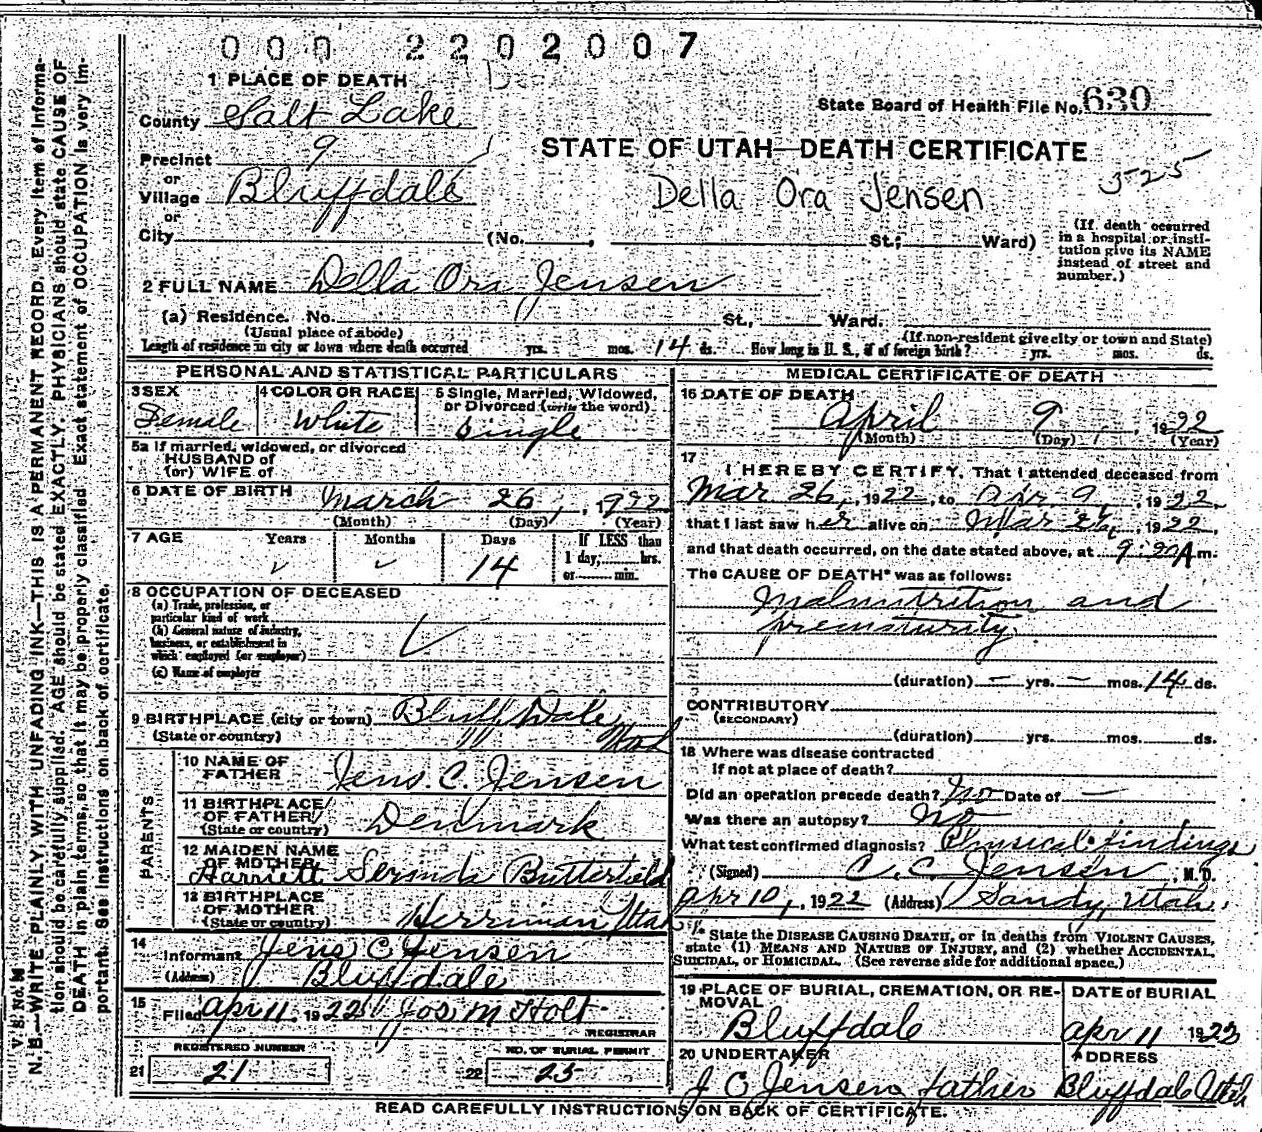 000 2202007
1 PLACE OF DEATH
County Salt Lake
State Board of Health File No. 630
Precinct 9
STATE OF UTAH—DEATH CERTIFICATE
or
Village Bluffdale
Della Ora Jensen
525
or
City (No. , St.; Ward)
(If death occurred in a hospital or insti-
tution give its NAME
instead of street and
number.)
2 FULL NAME Della Ora Jensen
(a) Residence. No. St., Ward.
(Usual place of abode) (If non-resident give city or town and State)
Length of residence in city or town where death occurred yrs. mos. 14 ds. How long in U. S., if of foreign birth? yrs. mos. ds.
PERSONAL AND STATISTICAL PARTICULARS
3 SEX
Female
4 COLOR OR RACE
White
5 Single, Married, Widowed,
or Divorced (write the word)
Single
5a If married, widowed, or divorced
HUSBAND of
(or) WIFE of
6 DATE OF BIRTH March 26, 1922
(Month) (Day) (Year)
7 AGE Years Months Days If LESS than
1 day, hrs.
or min.
14
8 OCCUPATION OF DECEASED
(a) Trade, profession, or
particular kind of work
(b) General nature of industry,
business, or establishment in
which employed (or employer)
(c) Name of employer
9 BIRTHPLACE (city or town) Bluff Dale
(State or country) Utah
PARENTS
10 NAME OF
FATHER Jens. C. Jensen
11 BIRTHPLACE
OF FATHER
(State or country) Denmark
12 MAIDEN NAME
OF MOTHER
Harriett Serinda Butterfield
13 BIRTHPLACE
OF MOTHER
(State or country) Herriman Utah
14
Informant Jens C Jensen
(Address) Bluffdale
15
Filed Apr 11, 1922 Jos. M Holt
REGISTRAR
REGISTERED NUMBER NO. OF BURIAL PERMIT
21 21 22 25
MEDICAL CERTIFICATE OF DEATH
16 DATE OF DEATH
April 9, 1922
(Month) (Day) (Year)
17
I HEREBY CERTIFY, That I attended deceased from
Mar 26, 1922, to Apr 9, 1922,
that I last saw her alive on Mar 26, 1922,
and that death occurred, on the date stated above, at 9:20 A m.
The CAUSE OF DEATH* was as follows:
Malnutrition and
prematurity
(duration) — yrs. — mos. 14 ds.
CONTRIBUTORY
(SECONDARY)
(duration) yrs. mos. ds.
18 Where was disease contracted
If not at place of death?
Did an operation precede death? No Date of —
Was there an autopsy? No
What test confirmed diagnosis? Physical findings
(Signed) C. C. Jensen, M. D.
Apr 10, 1922 (Address) Sandy, Utah.
* State the DISEASE CAUSING DEATH, or in deaths from VIOLENT CAUSES,
state (1) MEANS AND NATURE OF INJURY, and (2) whether ACCIDENTAL,
SUICIDAL, or HOMICIDAL. (See reverse side for additional space.)
19 PLACE OF BURIAL, CREMATION, OR RE-
MOVAL
Bluffdale
DATE of BURIAL
Apr 11 1922
20 UNDERTAKER
J C Jensen father
ADDRESS
Bluffdale Utah
READ CAREFULLY INSTRUCTIONS ON BACK OF CERTIFICATE.
N. B.—WRITE PLAINLY, WITH UNFADING INK—THIS IS A PERMANENT RECORD. Every item of informa-
tion should be carefully supplied. AGE should be stated EXACTLY. PHYSICIANS should state CAUSE OF
DEATH in plain terms, so that it may be properly classified. Exact statement of OCCUPATION is very im-
portant. See instructions on back of certificate.